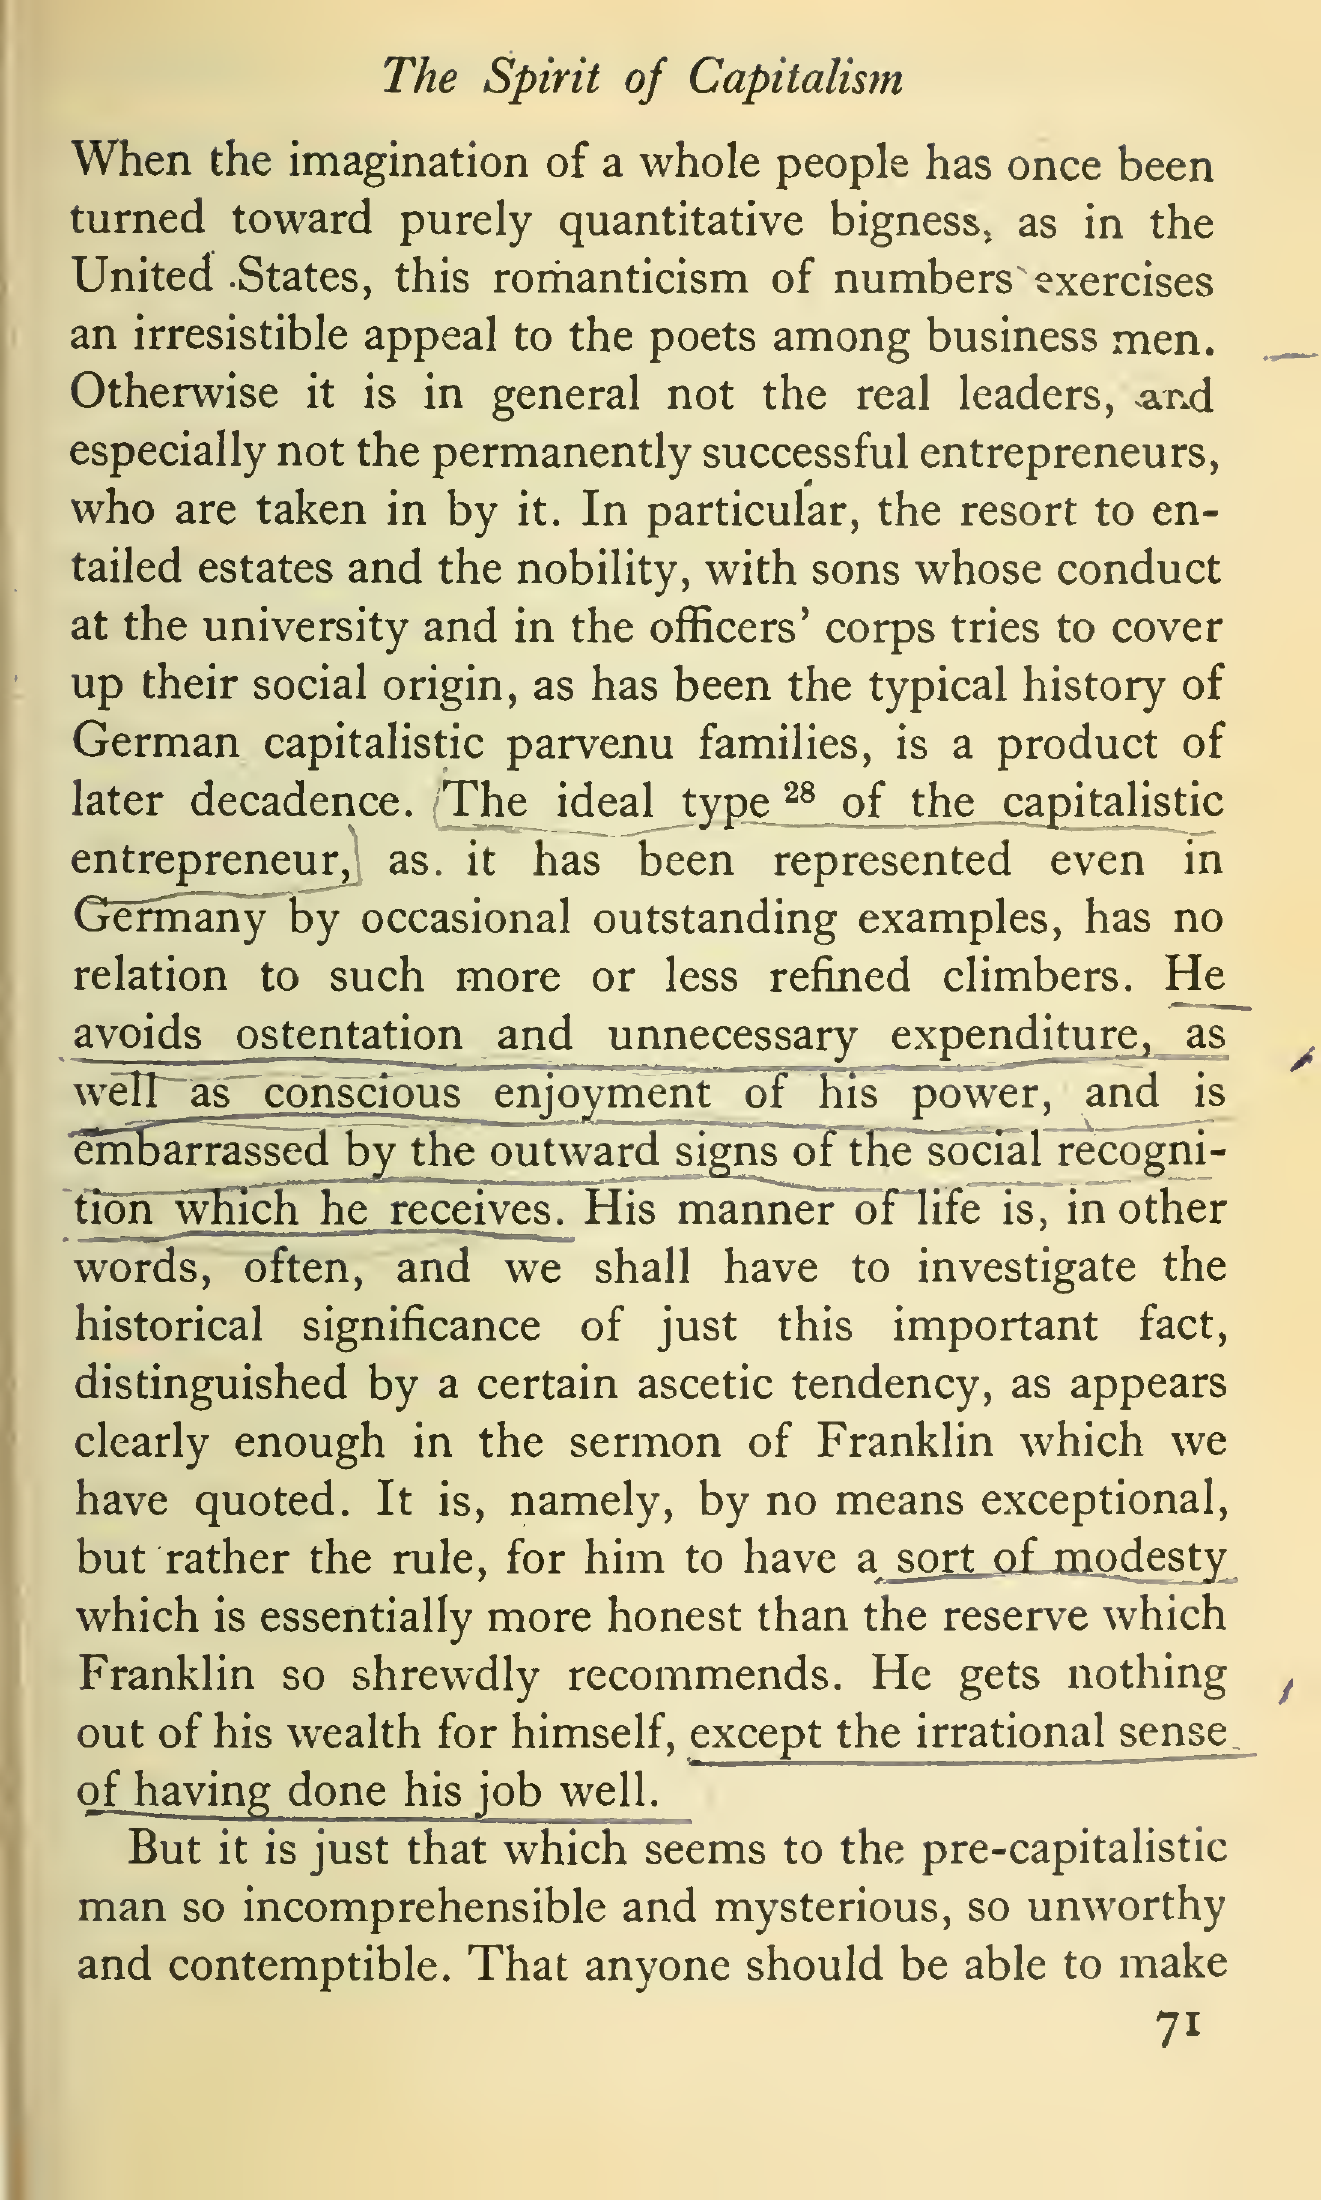 The Spirit of Capitalism
When the imagination of a whole people has once been
turned toward purely quantitative bigness, as in the
United States, this romanticism of numbers exercises
an irresistible appeal to the poets among business men.
Otherwise it is in general not the real leaders, and
especially not the permanently successful entrepreneurs,
who are taken in by it. In particular, the resort to en-
tailed estates and the nobility, with sons whose conduct
at the university and in the officers’ corps tries to cover
up their social origin, as has been the typical history of
German capitalistic parvenu families, is a product of
later decadence. The ideal type 28 of the capitalistic
entrepreneur, as it has been represented even in
Germany by occasional outstanding examples, has no
relation to such more or less refined climbers. He
avoids ostentation and unnecessary expenditure, as
well as conscious enjoyment of his power, and is
embarrassed by the outward signs of the social recogni-
tion which he receives. His manner of life is, in other
words, often, and we shall have to investigate the
historical significance of just this important fact,
distinguished by a certain ascetic tendency, as appears
clearly enough in the sermon of Franklin which we
have quoted. It is, namely, by no means exceptional,
but rather the rule, for him to have a sort of modesty
which is essentially more honest than the reserve which
Franklin so shrewdly recommends. He gets nothing
out of his wealth for himself, except the irrational sense
of having done his job well.
But it is just that which seems to the pre-capitalistic
man so incomprehensible and mysterious, so unworthy
and contemptible. That anyone should be able to make
71